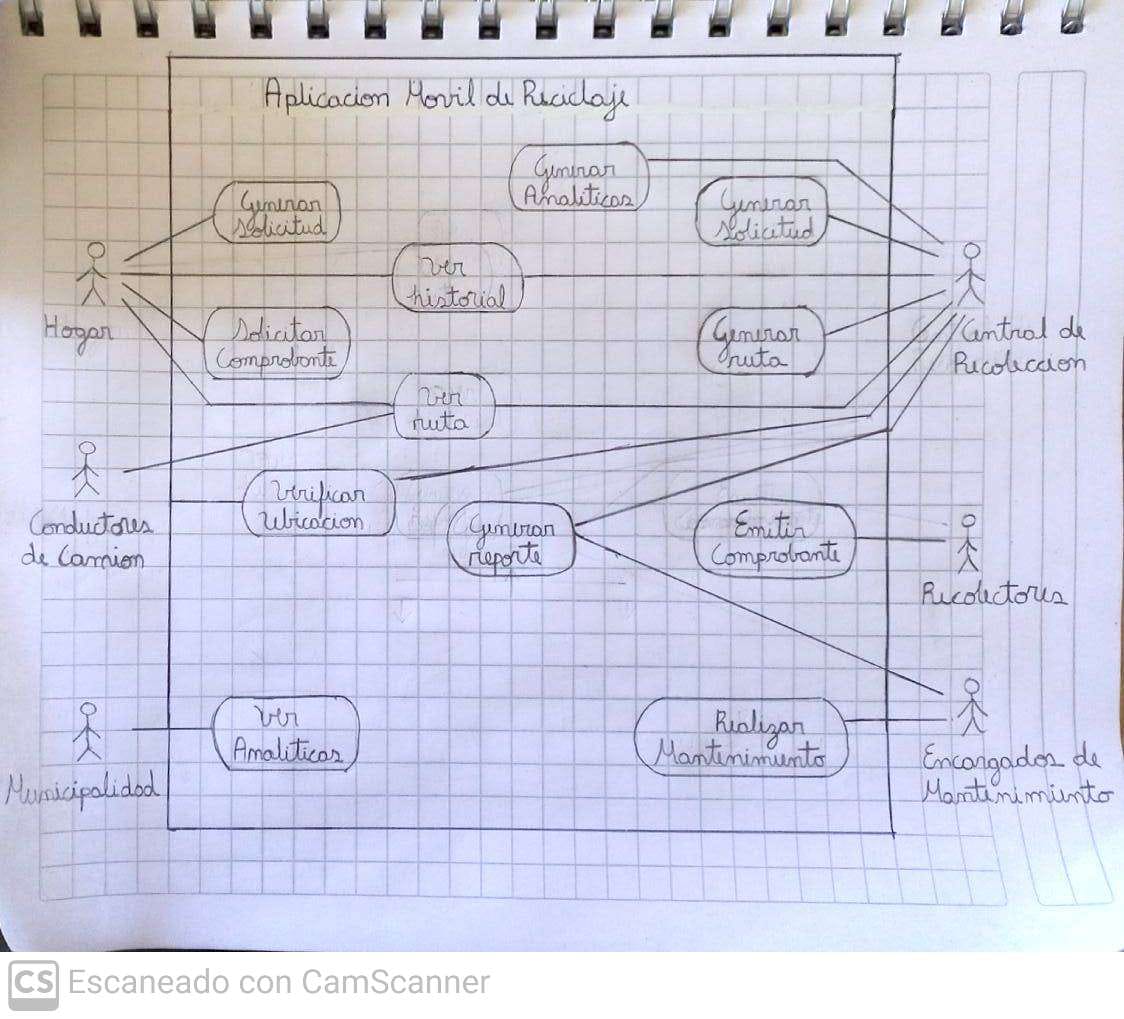 Aplicacion Movil de Reciclaje
Generar
Analiticas
Generar
Solicitud
Generar
Solicitud
Ver
historial
Hogar
Solicitar
Comprobante
Generar
ruta
Central de
Recoleccion
Ver
ruta
Verificar
Ubicacion
Conductores
de Camion
Generar
reporte
Emitir
Comprobante
Recolectores
Ver
Analiticas
Realizar
Mantenimiento
Municipalidad
Encargados de
Mantenimiento
CS Escaneado con CamScanner